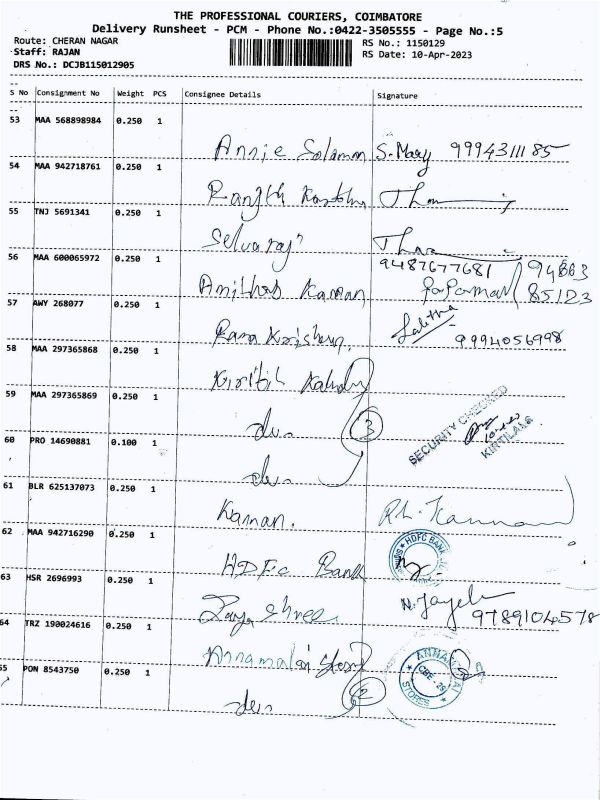 THE PROFESSIONAL COURIERS, COIMBATORE
Delivery Runsheet - PCM - Phone No.:0422-3505555 - Page No.:5
Route: CHERAN NAGAR RS No.: 1150129
Staff: RAJAN RS Date: 10-Apr-2023
DRS No.: DCJB115012905
S No Consignment No Weight PCS Consignee Details Signature
53 MAA 568898984 0.250 1
Annie Solomon S. Mary 9994311185
54 MAA 942718761 0.250 1
Ranjth
55 TNJ 5691341 0.250 1
Selvaraj
56 MAA 600065972 0.250 1
9487677681 94863
Anithas Kannan 85123
57 AWY 268077 0.250 1
Lalitha
Rama Krishnan. 9994056998
58 MAA 297365868 0.250 1
59 MAA 297365869 0.250 1
SECURITY CHECKED
do. 3
KIRTILALS
60 PRO 14690881 0.100 1
do.
61 BLR 625137073 0.250 1
Kannan. RL. Kannan
62 MAA 942716290 0.250 1
HDFC BANK
HDFC Bank
63 HSR 2696993 0.250 1
N. Jayel
Jaya Shree 9789104578
64 TRZ 190024616 0.250 1
Annamalai Stores
ANNAMALAI STORES
CBE - 29
55 PON 8543750 0.250 1
do. 2